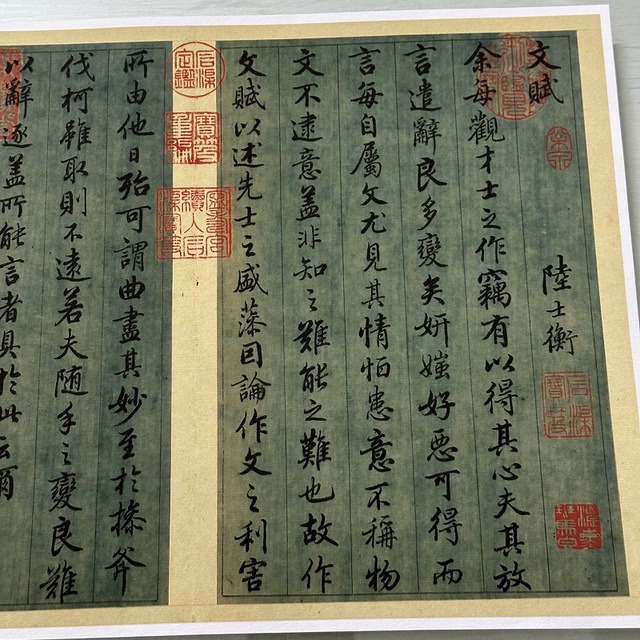 文賦 陸士衡
余每觀才士之作竊有以得其心夫其放
言遣辭良多變矣妍媸好惡可得而
言每自屬文尤見其情恒患意不稱物
文不逮意盖非知之難能之難也故作
文賦以述先士之盛藻因論作文之利害
所由他日殆可謂曲盡其妙至於操斧
伐柯雖取則不遠若夫随手之變良難
以辭逐盖所能言者具於此云爾